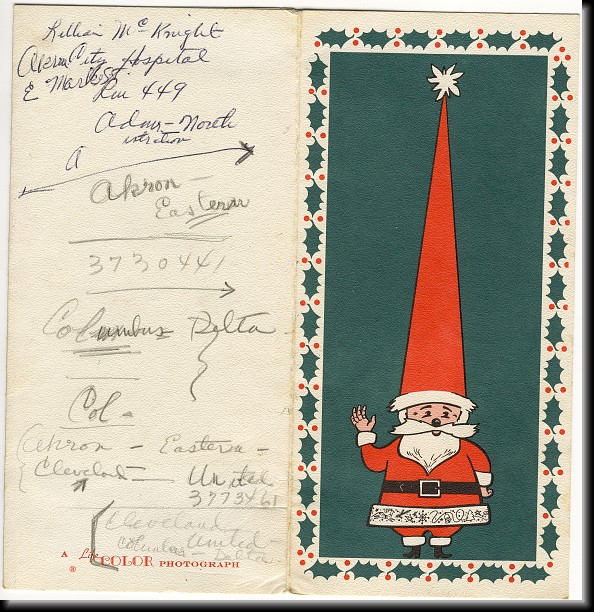 Lillian McKnight
Akron City Hospital
E Market St
Rm 449
Adams - North
istration
A
Akron -
Eastern
3730441
Columbus Delta -
Col -
Akron - Eastern -
Cleveland - United
3773461
Cleveland -
United -
Columbus - Delta -
A Life COLOR PHOTOGRAPH
®